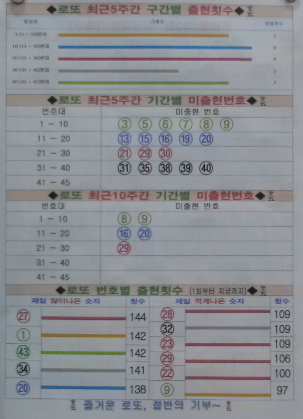 ◆로또 최근5주간 구간별 출현횟수◆
◆로또 최근5주간 기간별 미출현번호◆
번호대 미출현 번호
1 - 10 ③ ⑤ ⑥ ⑦ ⑧ ⑨
11 - 20 ⑬ ⑮ ⑯ ⑲ ⑳
21 - 30 ㉑ ㉙ ㉚
31 - 40 ㉛ ㉟ ㊳ ㊴ ㊵
41 - 45
◆로또 최근10주간 기간별 미출현번호◆
번호대 미출현 번호
1 - 10 ⑧ ⑨
11 - 20 ⑯ ⑳
21 - 30 ㉙
31 - 40
41 - 45
◆로또 번호별 출현횟수 (1회부터 지금까지)◆
제일 많이나온 숫자 횟수 제일 적게나온 숫자 횟수
㉗ 144 ㉘ 109
① 142 ㉜ 109
㊸ 142 ㉓ 109
㉞ 141 ㉙ 106
⑳ 138 ㉒ 100
⑨ 97
즐거운 로또, 절반의 기부~